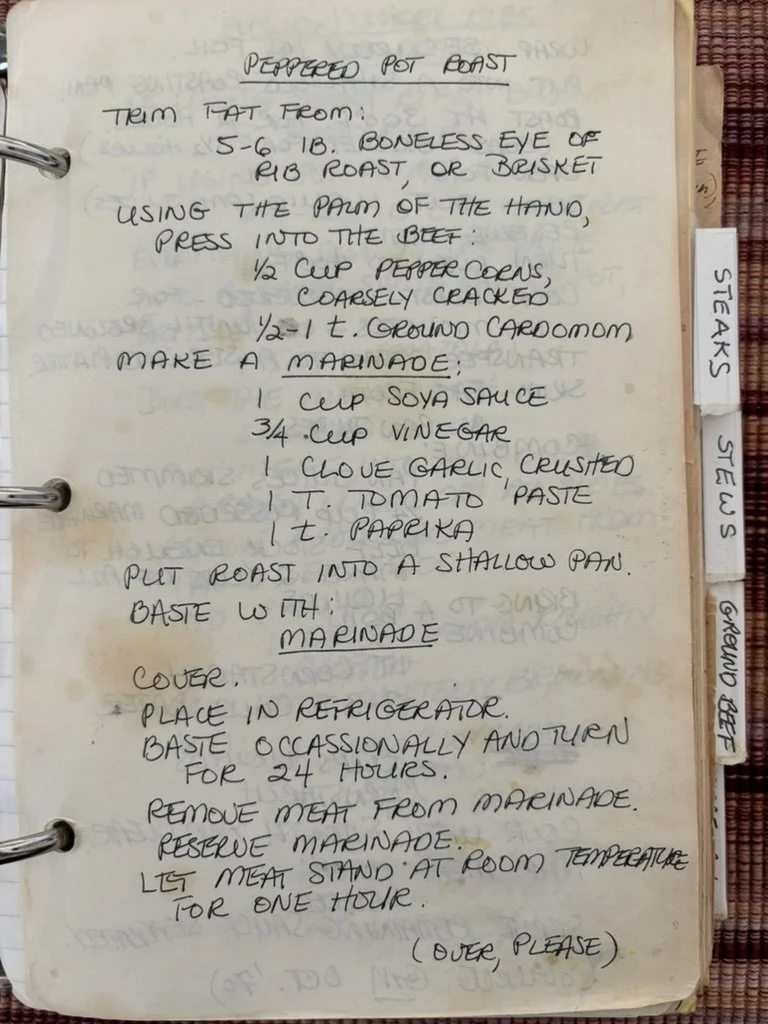 PEPPERED POT ROAST
TRIM FAT FROM:
5-6 lB. BONELESS EYE OF
RIB ROAST, OR BRISKET
USING THE PALM OF THE HAND,
PRESS INTO THE BEEF:
1/2 CUP PEPPERCORNS,
COARSELY CRACKED
1/2-1 t. GROUND CARDOMOM
MAKE A MARINADE:
1 CUP SOYA SAUCE
3/4 CUP VINEGAR
1 CLOVE GARLIC, CRUSHED
1 T. TOMATO PASTE
1 t. PAPRIKA
PUT ROAST INTO A SHALLOW PAN.
BASTE WITH:
MARINADE
COVER.
PLACE IN REFRIGERATOR.
BASTE OCCASSIONALLY AND TURN
FOR 24 HOURS.
REMOVE MEAT FROM MARINADE.
RESERVE MARINADE.
LET MEAT STAND AT ROOM TEMPERATURE
FOR ONE HOUR.
(OVER, PLEASE)
STEAKS
STEWS
GROUND BEEF